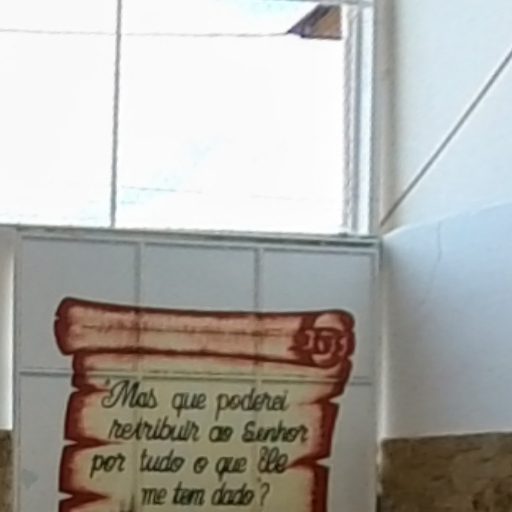 "Mas que poderei
retribuir ao Senhor
por tudo o que Ele
me tem dado"?